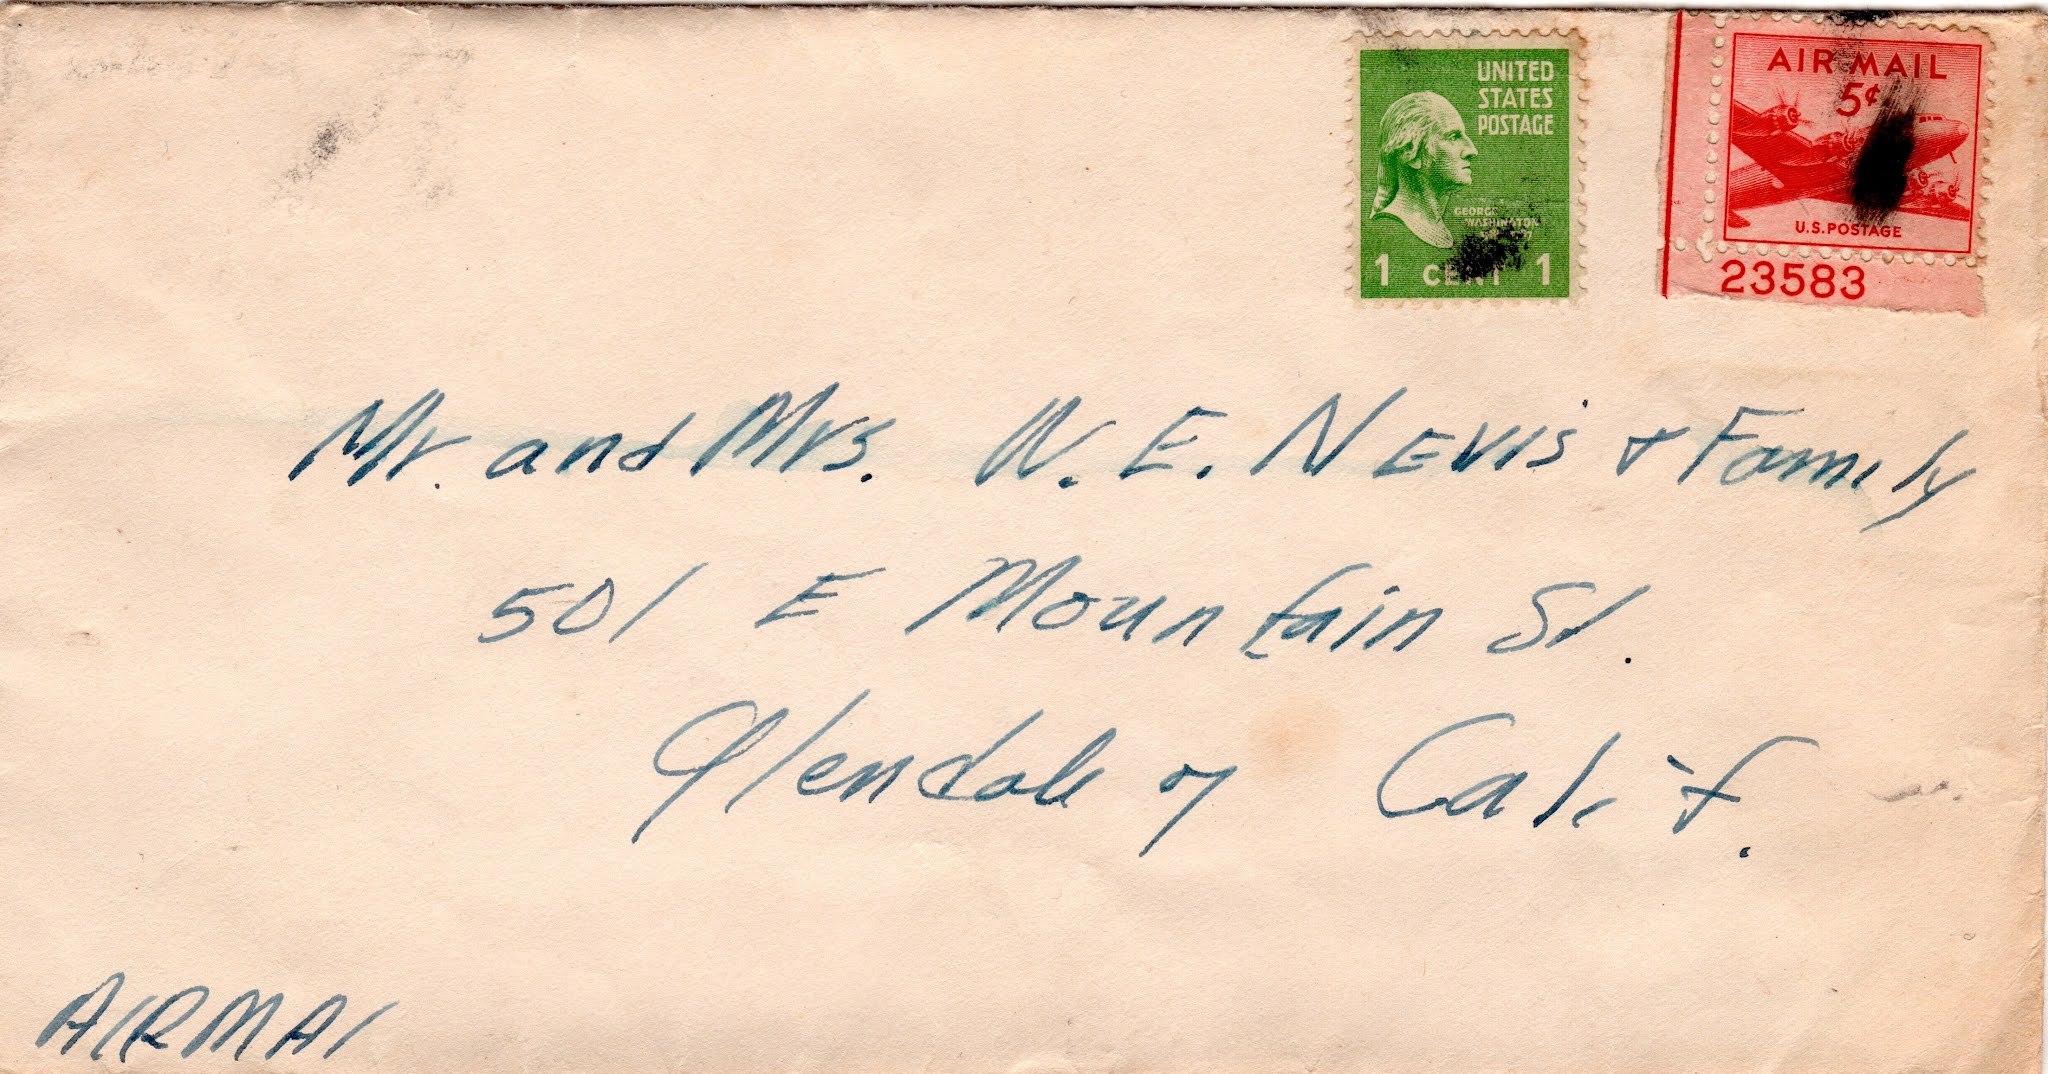 UNITED
STATES
POSTAGE
GEORGE
WASHINGTON
1 CENT 1
AIR MAIL
5¢
U.S. POSTAGE
23583
Mr. and Mrs. W. E. NEVIS & Family
501 E Mountain St.
Glendale 7 Calif.
AIRMAI